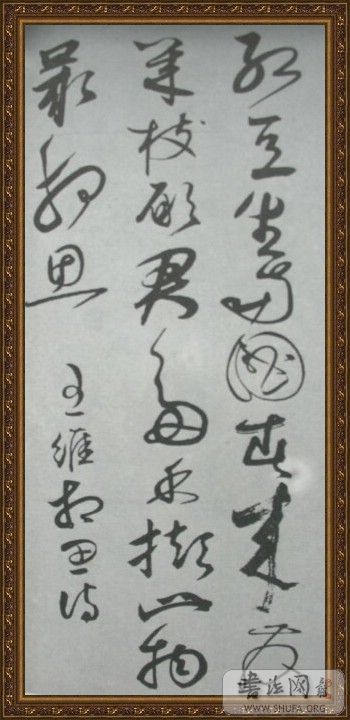 红豆生南国春来发
几枝愿君多采撷此物
最相思
王维相思诗
书法网
WWW.SHUFA.ORG